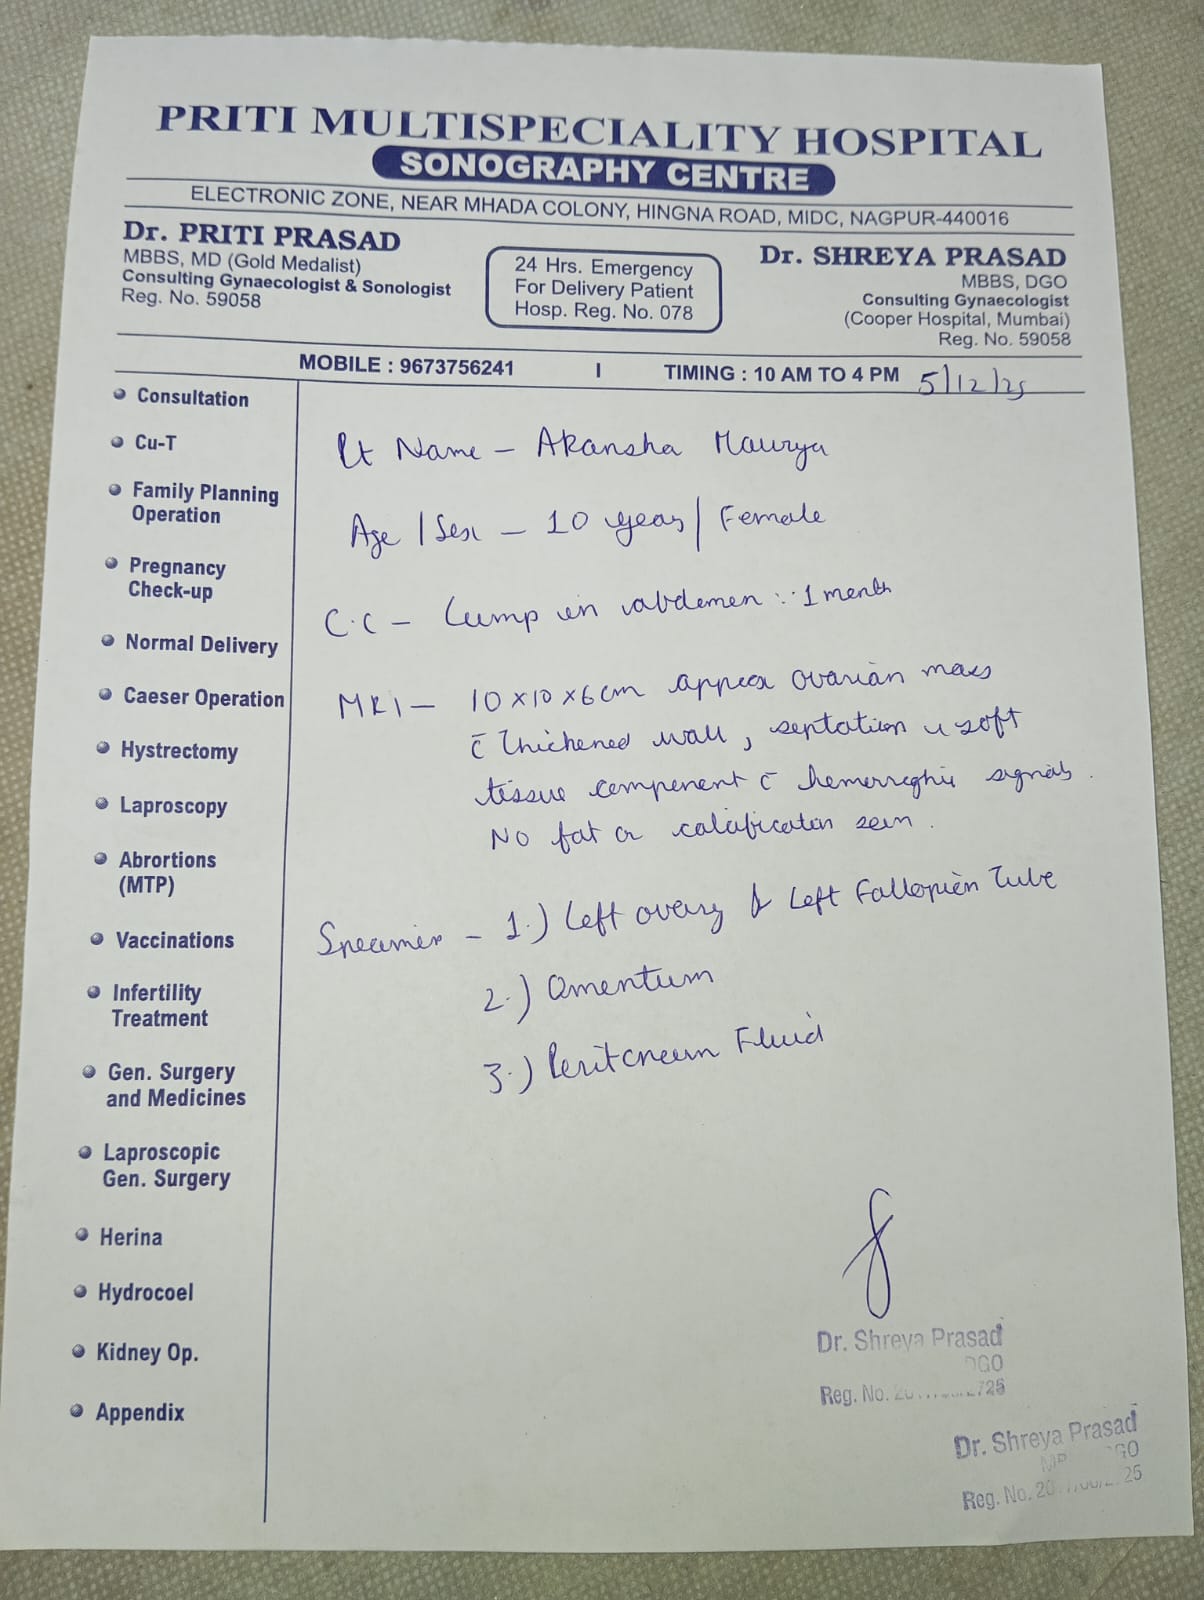 PRITI MULTISPECIALITY HOSPITAL
SONOGRAPHY CENTRE
ELECTRONIC ZONE, NEAR MHADA COLONY, HINGNA ROAD, MIDC, NAGPUR-440016
Dr. PRITI PRASAD
MBBS, MD (Gold Medalist)
Consulting Gynaecologist & Sonologist
Reg. No. 59058
24 Hrs. Emergency
For Delivery Patient
Hosp. Reg. No. 078
Dr. SHREYA PRASAD
MBBS, DGO
Consulting Gynaecologist
(Cooper Hospital, Mumbai)
Reg. No. 59058
MOBILE : 9673756241 | TIMING : 10 AM TO 4 PM 5/12/25
Consultation
Cu-T
Family Planning
Operation
Pregnancy
Check-up
Normal Delivery
Caeser Operation
Hystrectomy
Laproscopy
Abrortions
(MTP)
Vaccinations
Infertility
Treatment
Gen. Surgery
and Medicines
Laproscopic
Gen. Surgery
Herina
Hydrocoel
Kidney Op.
Appendix
Pt Name - Akansha Maurya
Age / Sex - 10 years / Female
C.C - Lump in abdomen :. 1 month
MRI - 10 x 10 x 6 cm approx ovarian mass
c̄ thickened wall, septation soft
tissue component c̄ hemorrhagic signals.
No fat or calcification seen.
Specimen - 1.) Left ovary & Left Fallopian Tube
2.) Omentum
3.) Peritoneum Fluid
Dr. Shreya Prasad
DGO
Reg. No.
Dr. Shreya Prasad
Reg. No.